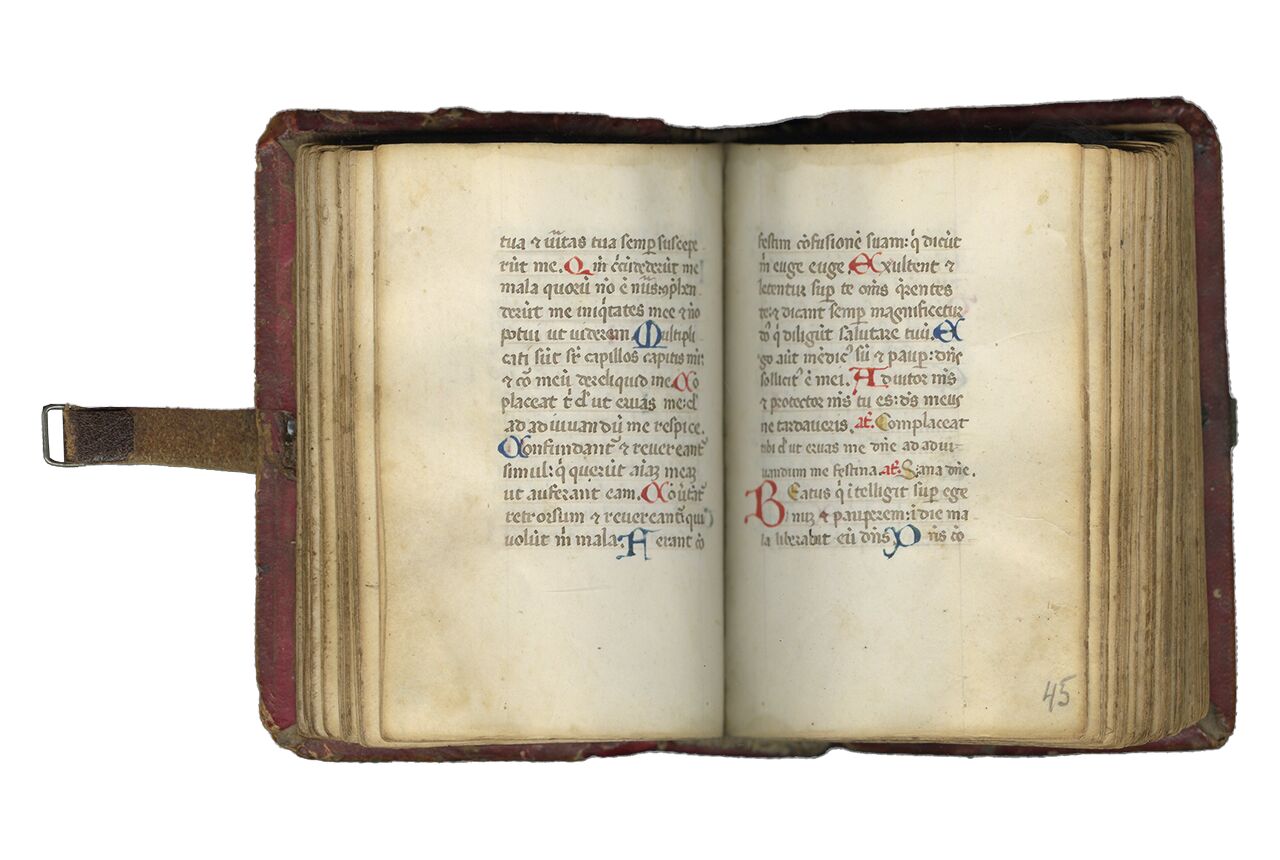 tua ⁊ ūitas tua semp suscepe
rūt me. Qm̄ c̄cūdederūt me
mala quorū nō ē nūs: ɔp̄hen
derūt me iniq̄tates mee ⁊ nō
potui ut uiderem. Multipli
cati sūt sr̄ capillos capitis mī:
⁊ cō meū dereliquid me. Cō
placeat t̄ d̄ ut eruas me: d̄
ad adiuuandū me respice.
Confundant̄ ⁊ reuereant̄
simul: q̄ querūt aīaꝫ meaꝫ
ut auferant eam. Cōūtat̄
retrorsum ⁊ reuereant̄ qui
volūt m̄ mala. Ferant cō
festim cōfusionē suam: q̄ dicūt
m̄ euge euge. Exultent ⁊
letentur sup te om̄s q̄rentes
te: ⁊ dicant semp magnificetur
dō q̄ diligūt salutare tuū. E
go aūt mēdicꝰ sū ⁊ paup: dn̄s
sollicitꝰ ē mei. Adiutor mīs
⁊ protector mīs tu es: dīs meus
ne tardaueris. añ. Complaceat
tibi d̄ ut eruas me dn̄e ad adiu-
uandum me festina. añ. Sana dn̄e.
Beatus q̄ ītelligit sup ege
nuꝫ ⁊ pauperem: ī die ma
la liberabit eū dn̄s. Dn̄s cō
45